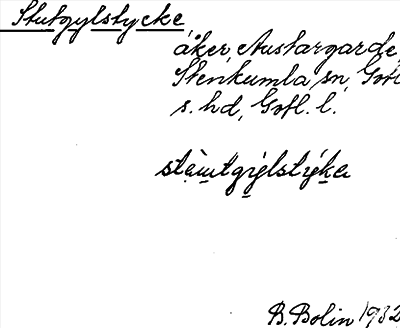 Stutgylstycke
åker, Austargarde,
Stenkumla sn, Gotl.
s. hd, Gotl. l.
B. Bolin 1932